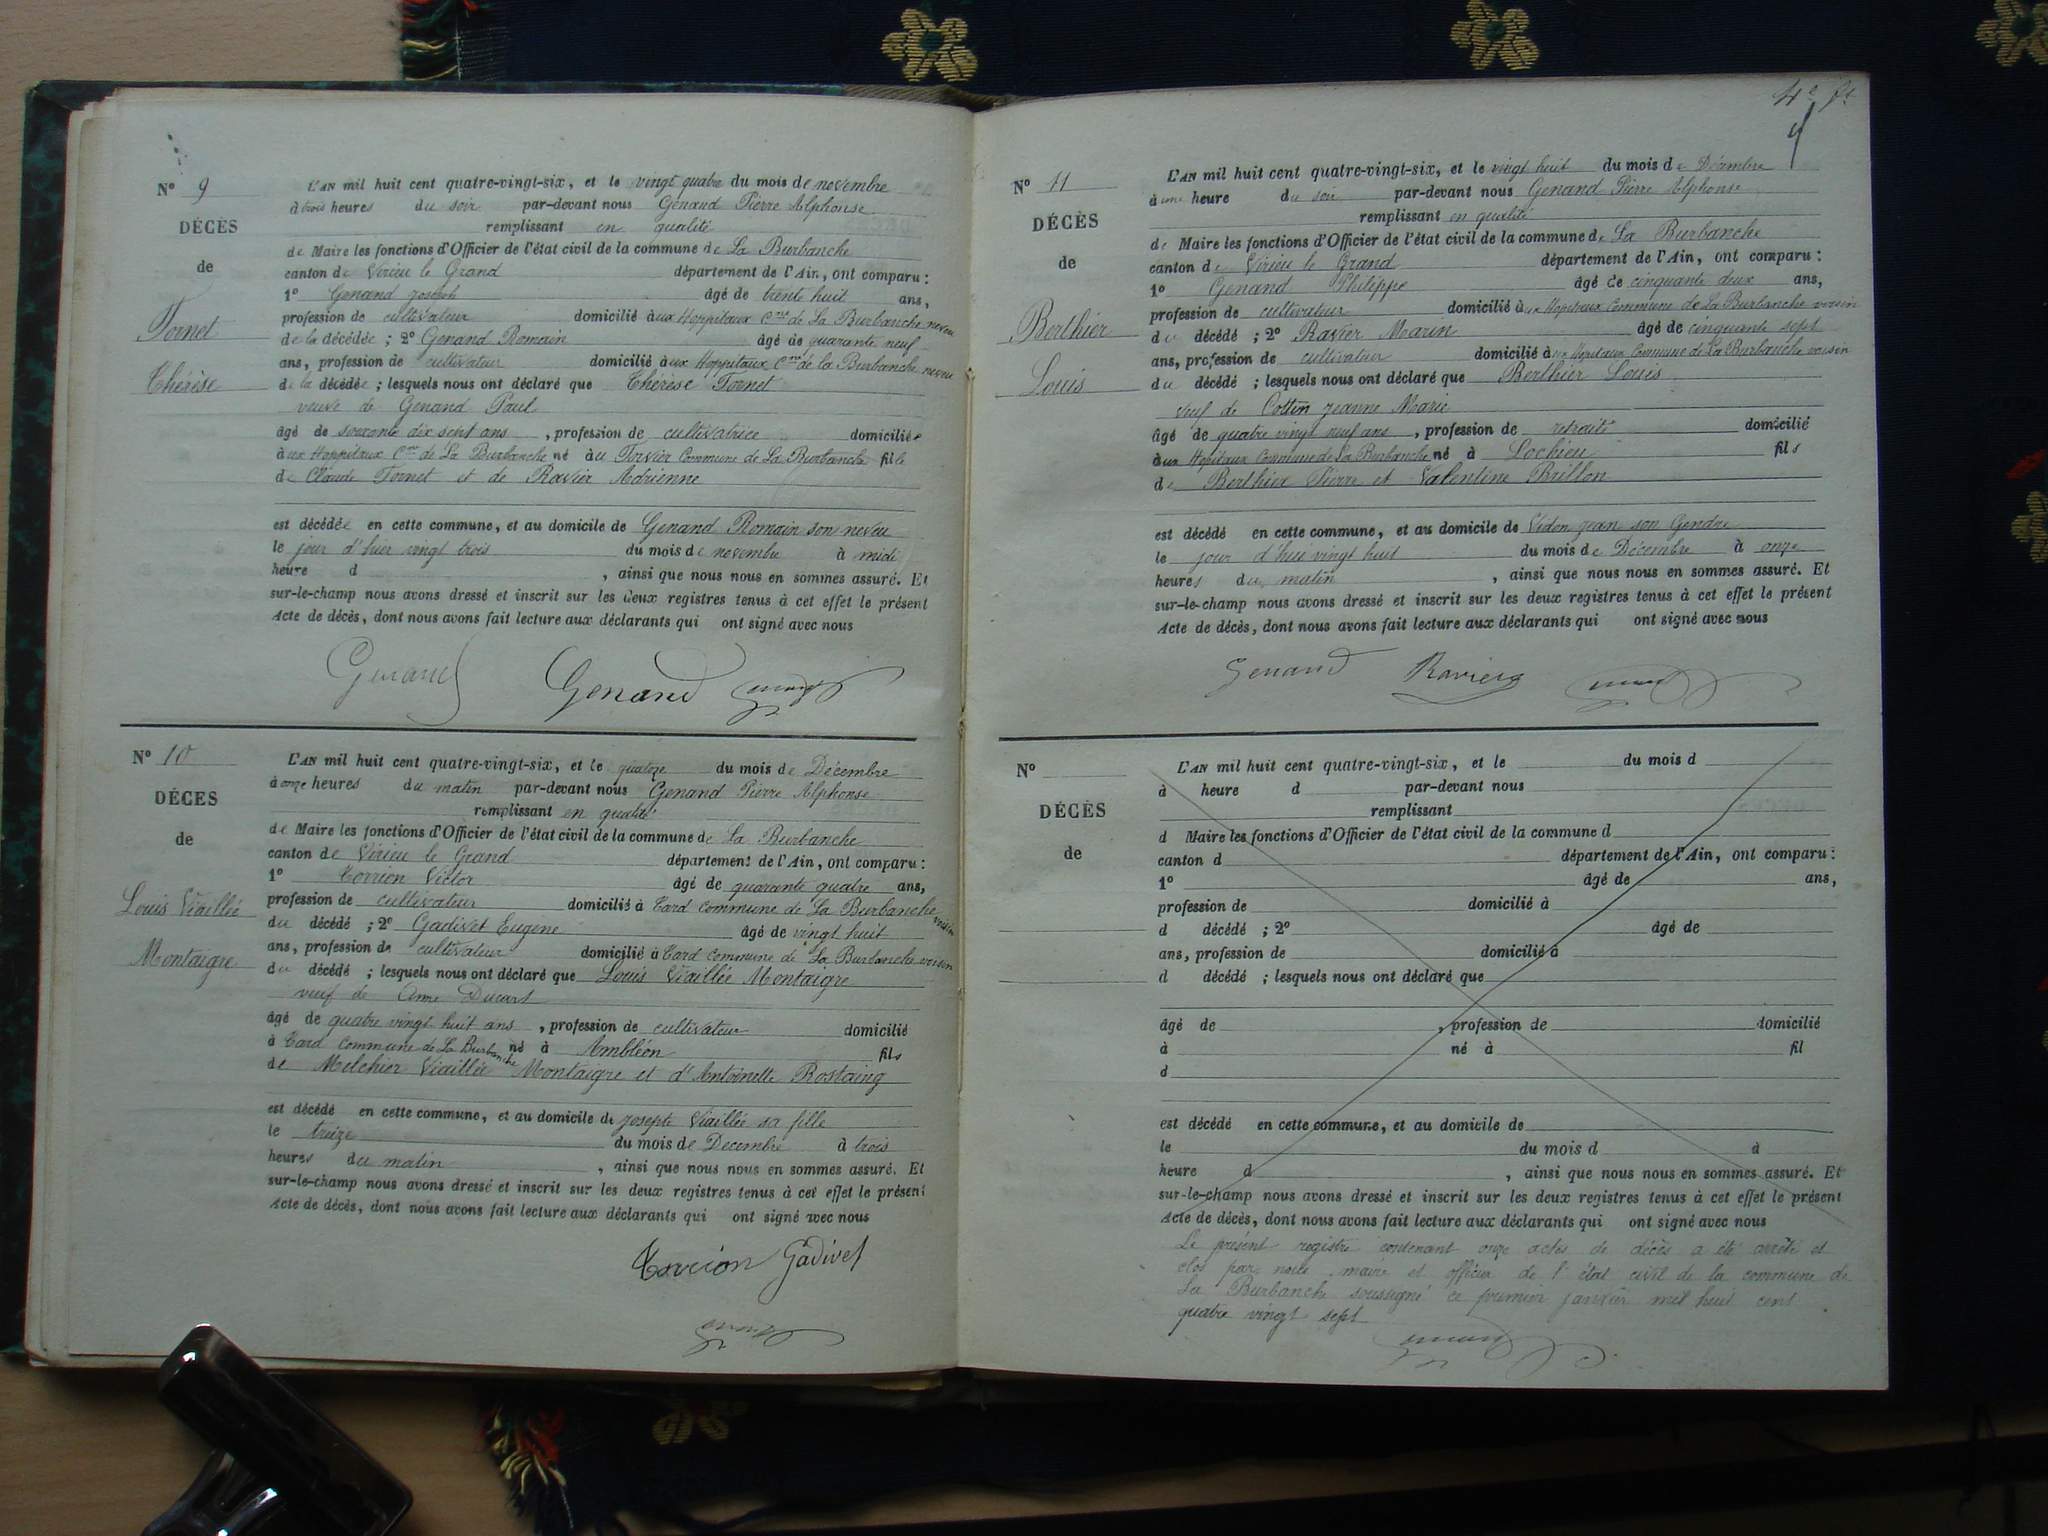 Nº 9
DÉCÈS
de
Tornet
Thérèse
L'AN mil huit cent quatre-vingt-six, et le vingt quatre du mois de novembre
à trois heures du soir par-devant nous Genand Pierre Alphonse
remplissant en qualité
de Maire les fonctions d'Officier de l'état civil de la commune de La Burbanche
canton de Virieu le Grand département de l'Ain, ont comparu :
1º Genand Joseph âgé de trente huit ans,
profession de cultivateur domicilié aux Hoppitaux Cne de La Burbanche neveu
de la décédée ; 2º Genand Romain âgé de quarante neuf
ans, profession de cultivateur domicilié aux Hoppitaux Cne de la Burbanche neveu
de la décédée ; lesquels nous ont déclaré que Thérèse Tornet
veuve de Genand Paul
âgé de soixante dix sept ans, profession de cultivatrice domiciliée
aux Hoppitaux Cne de La Burbanche né au Tarvier Commune de La Burbanche fille
de Claude Tornet et de Ravier Adrienne
est décédée en cette commune, et au domicile de Genand Romain son neveu
le jour d'hier vingt trois du mois de novembre à midi
heure d , ainsi que nous nous en sommes assuré. Et
sur-le-champ nous avons dressé et inscrit sur les deux registres tenus à cet effet le présent
Acte de décès, dont nous avons fait lecture aux déclarants qui ont signé avec nous
Genand Genand
Nº 10
DÉCES
de
Louis Viaillée
Montaigre
L'AN mil huit cent quatre-vingt-six, et le quatorze du mois de Décembre
à onze heures du matin par-devant nous Genand Pierre Alphonse
remplissant en qualité
de Maire les fonctions d'Officier de l'état civil de la commune de La Burbanche
canton de Virieu le Grand département de l'Ain, ont comparu :
1º Corrion Victor âgé de quarante quatre ans,
profession de cultivateur domicilié à Tard commune de La Burbanche voisin
du décédé ; 2º Gadivet Eugène âgé de vingt huit
ans, profession de cultivateur domicilié à Tard commune de La Burbanche voisin
du décédé ; lesquels nous ont déclaré que Louis Viaillée Montaigre
veuf de Anne Ducart
âgé de quatre vingt huit ans, profession de cultivateur domicilié
à Tard commune de La Burbanche né à Ambléon fils
de Melchier Viaillée Montaigre et d'Antoinette Rostaing
est décédé en cette commune, et au domicile de Josepte Viaillée sa fille
le treize du mois de Decembre à trois
heures du matin , ainsi que nous nous en sommes assuré. Et
sur-le-champ nous avons dressé et inscrit sur les deux registres tenus à cet effet le présent
Acte de décès, dont nous avons fait lecture aux déclarants qui ont signé avec nous
Corrion Gadivet
4e
Nº 11
DÉCÈS
de
Berthier
Louis
L'AN mil huit cent quatre-vingt-six, et le vingt huit du mois de Décembre
à une heure du soir par-devant nous Genand Pierre Alphonse
remplissant en qualité
de Maire les fonctions d'Officier de l'état civil de la commune de La Burbanche
canton de Virieu le Grand département de l'Ain, ont comparu :
1º Genand Philippe âgé de cinquante deux ans,
profession de cultivateur domicilié aux Hopitaux Commune de La Burbanche voisin
du décédé ; 2º Ravier Marin âgé de cinquante sept
ans, profession de cultivateur domicilié aux Hopitaux Commune de La Burbanche voisin
du décédé ; lesquels nous ont déclaré que Berthier Louis
veuf de Cottin Jeanne Marie
âgé de quatre vingt neuf ans, profession de retraité domicilié
aux Hopitaux Commune de La Burbanche né à Lochieu fils
de Berthier Pierre et Valentine Brillon
est décédé en cette commune, et au domicile de Vidon Jean son Gendre
le jour d'hui vingt huit du mois de Décembre à onze
heures du matin , ainsi que nous nous en sommes assuré. Et
sur-le-champ nous avons dressé et inscrit sur les deux registres tenus à cet effet le présent
Acte de décès, dont nous avons fait lecture aux déclarants qui ont signé avec nous
Genand Ravier
Nº
DÉCÈS
de
L'AN mil huit cent quatre-vingt-six, et le du mois d
à heure d par-devant nous
remplissant
d Maire les fonctions d'Officier de l'état civil de la commune d
canton d département de l'Ain, ont comparu :
1º âgé de ans,
profession de domicilié à
d décédé ; 2º âgé de
ans, profession de domicilié à
d décédé ; lesquels nous ont déclaré que
âgé de , profession de domicilié
à né à fil
d
est décédé en cette commune, et au domicile de
le du mois d à
heure d , ainsi que nous nous en sommes assuré. Et
sur-le-champ nous avons dressé et inscrit sur les deux registres tenus à cet effet le présent
Acte de décès, dont nous avons fait lecture aux déclarants qui ont signé avec nous
Le présent registre contenant onze actes de décès a été arrêté et
clos par nous maire et officier de l'état civil de la commune de
La Burbanche soussigné ce premier janvier mil huit cent
quatre vingt sept